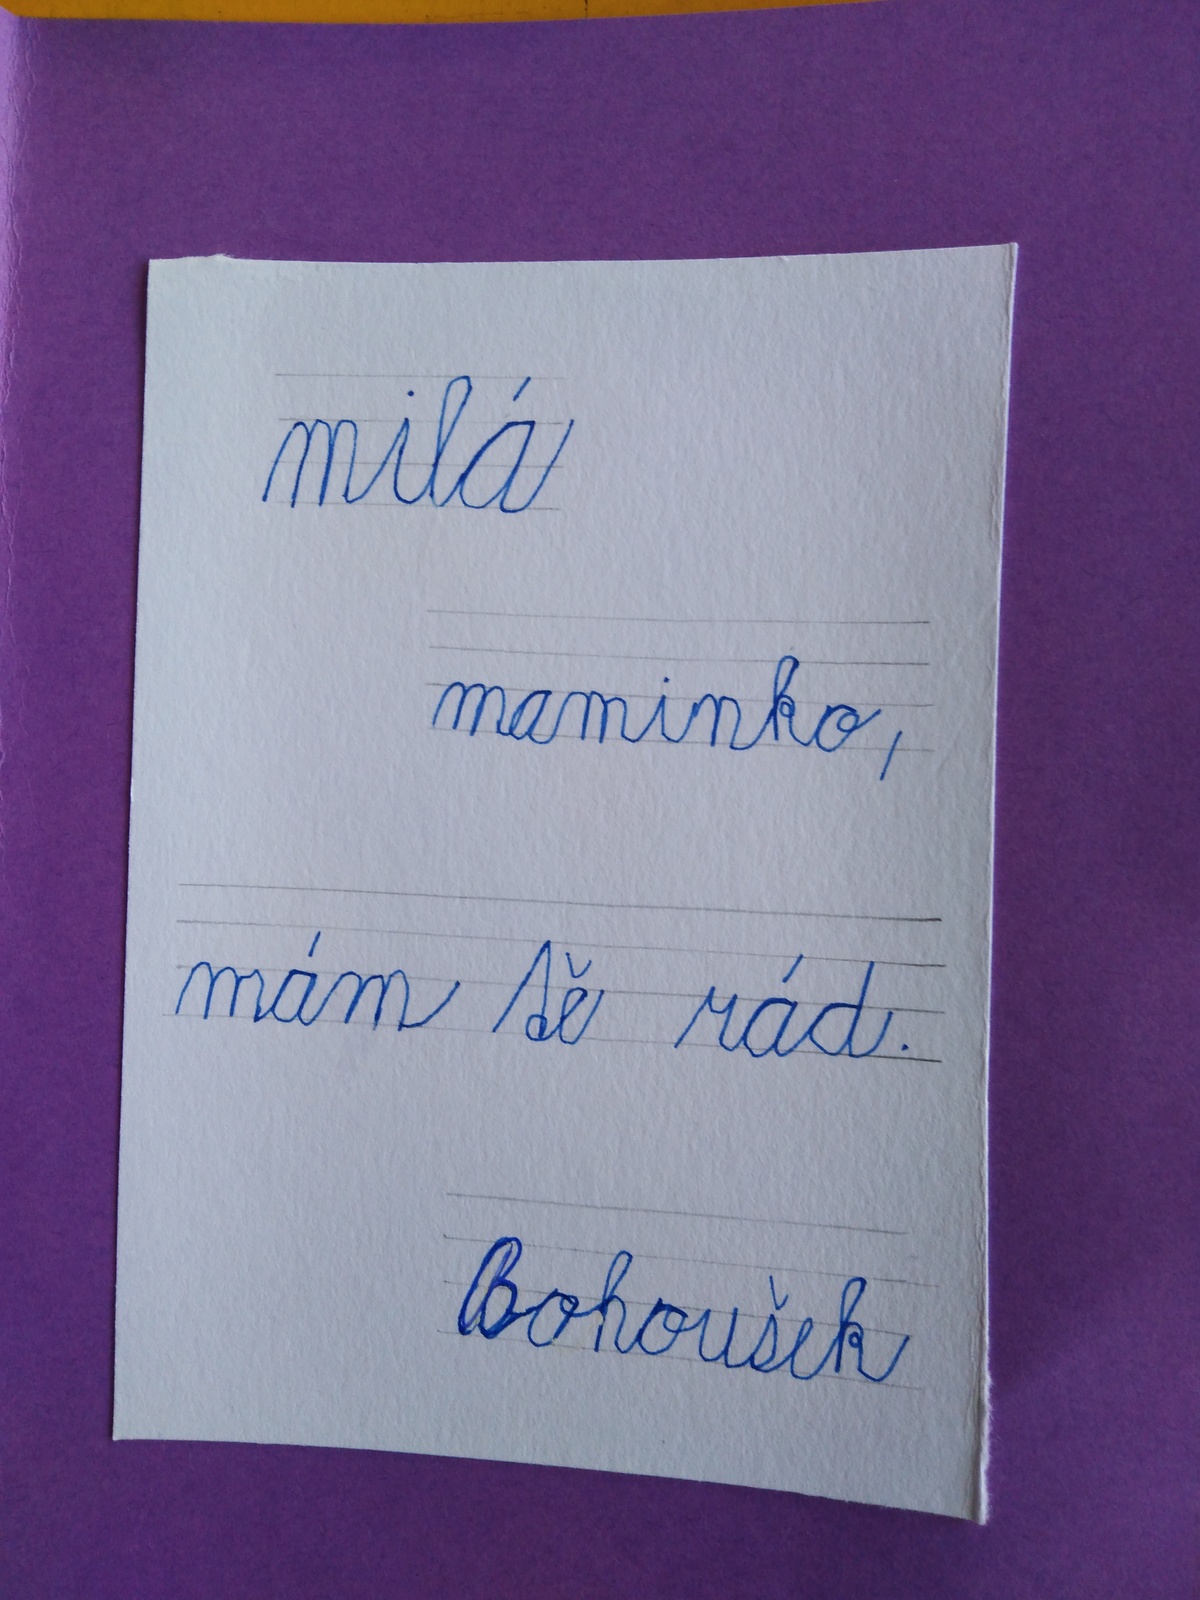 milá
maminko,
mám tě rád.
Bohoušek